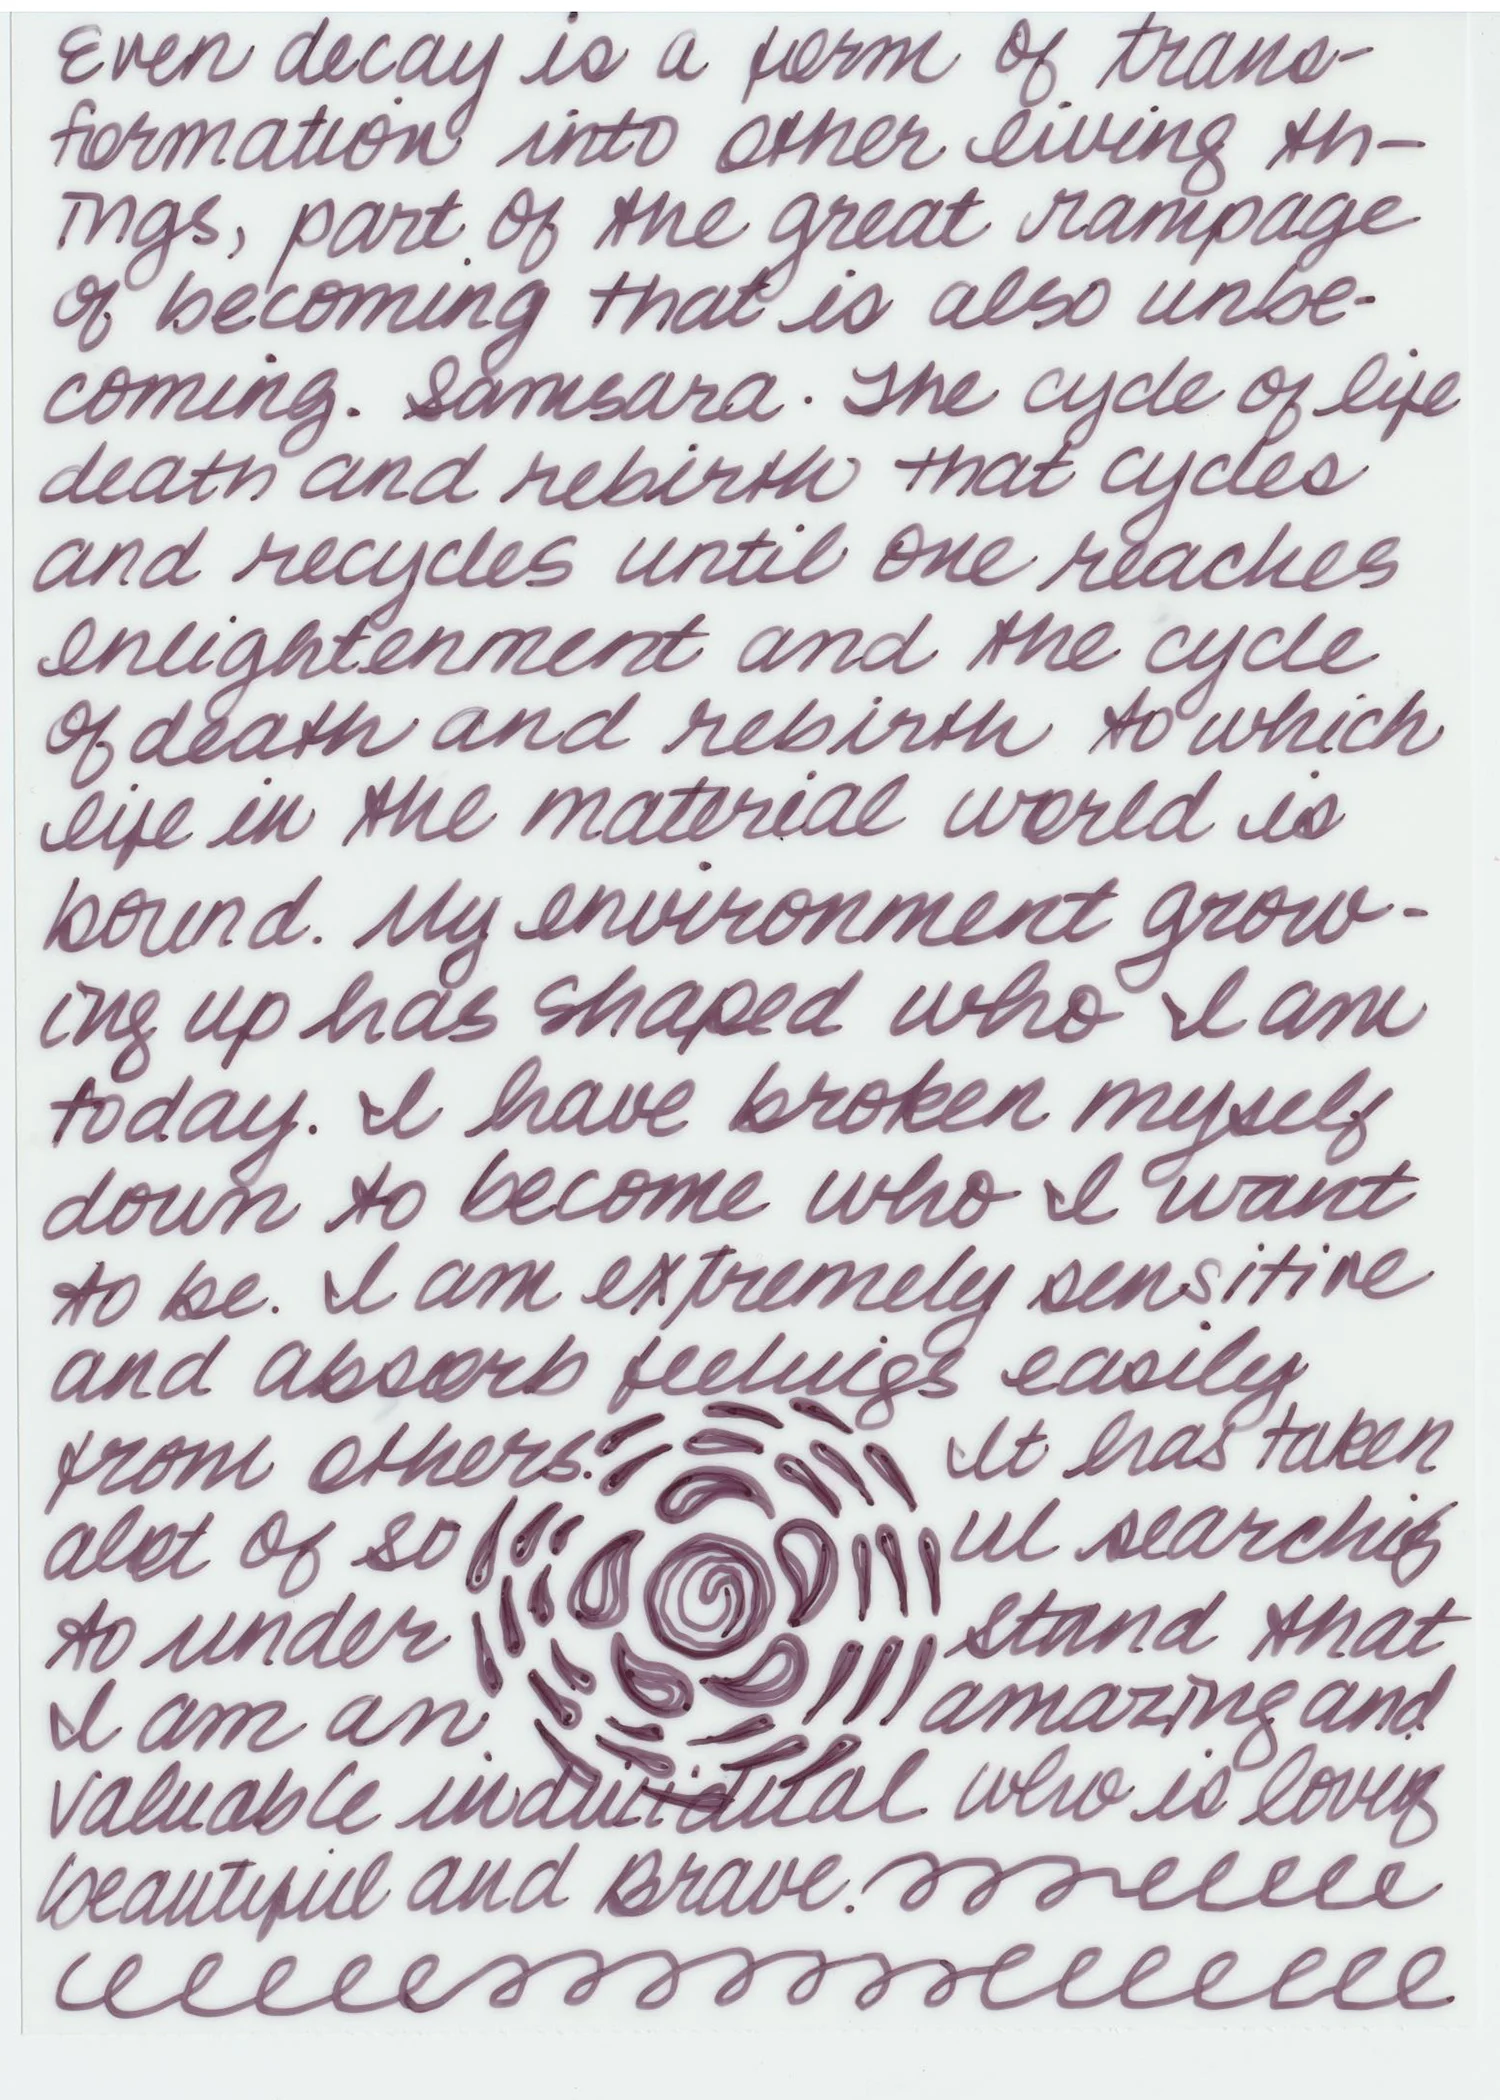 Even decay is a form of trans-
formation into other living th-
ings, part of the great rampage
of becoming that is also unbe-
coming. Samsara. The cycle of life
death and rebirth that cycles
and recycles until one reaches
enlightenment and the cycle
of death and rebirth to which
life in the material world is
bound. My environment grow-
ing up has shaped who I am
today. I have broken myself
down to become who I want
to be. I am extremely sensitive
and absorb feelings easily
from others. It has taken
alot of so ul searching
to under stand that
I am an amazing and
valuable individual who is loving
beautiful and Brave.